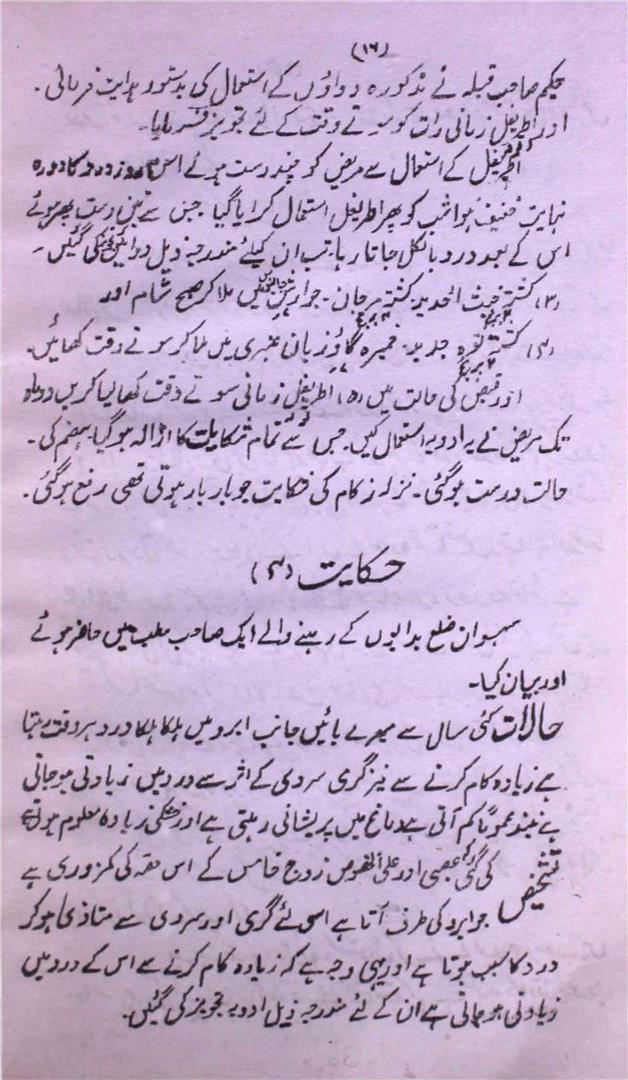 (۱۶)
حکیم صاحب قبلہ نے مذکورہ دواؤں کے استعمال کی بدستور ہدایت فرمائی۔
اور اطریفل زمانی رات کو سوتے وقت کے لئے تجویز فرمایا۔
اطریفل کے استعمال سے مریض کو چند دست ہوئے اس روز درد کا دورہ
نہایت خفیف ہوا شب کو پھر اطریفل استعمال کرایا گیا جس سے تین دست پھر ہوئے
اس کے بعد درد بالکل جاتا رہا۔ تب ان کیلئے مندرجہ ذیل دوائیں تجویز کی گئیں۔
(۳) کشتہ خبث الحدید۔ کشتہ مرجان۔ جوارش جالینوس میں ملا کر صبح شام اور
(۴) کشتہ نقرہ جدید۔ خمیرہ گاؤزبان عنبری میں ملا کر سوتے وقت کھائیں۔
اور قبض کی حالت میں (۵) اطریفل زمانی سوتے وقت کھا لیا کریں دو ماہ
تک مریض نے یہ ادویہ استعمال کیں۔ جس سے تمام شکایات کا ازالہ ہو گیا۔ ہضم کی۔
حالت درست ہو گئی۔ نزلہ زکام کی شکایت جو بار بار ہوتی تھی رفع ہو گئی۔
حکایت (۴)
سہسوان ضلع بدایوں کے رہنے والے ایک صاحب مطب میں حاضر ہوئے
اور بیان کیا۔
حالات کئی سال سے میرے بائیں جانب ابرو میں ہلکا ہلکا درد ہر وقت رہتا
ہے زیادہ کام کرنے سے نیز گرمی سردی کے اثر سے درد میں زیادتی ہو جاتی
ہے نیند عموماً کم آتی ہے دماغ میں پریشانی رہتی ہے اور خشکی زیادہ معلوم ہوتی ہے
تشخیص کی گئی کہ عصبی اور علی الخصوص زوج خامس کے اس حصہ کی کمزوری ہے
جو ابرو کی طرف آتا ہے اسی لئے گرمی اور سردی سے متاذی ہو کر
درد کا سبب ہوتا ہے اور یہی وجہ ہے کہ زیادہ کام کرنے سے اس کے درد میں
زیادتی ہو جاتی ہے ان کے لئے مندرجہ ذیل ادویہ تجویز کی گئیں۔